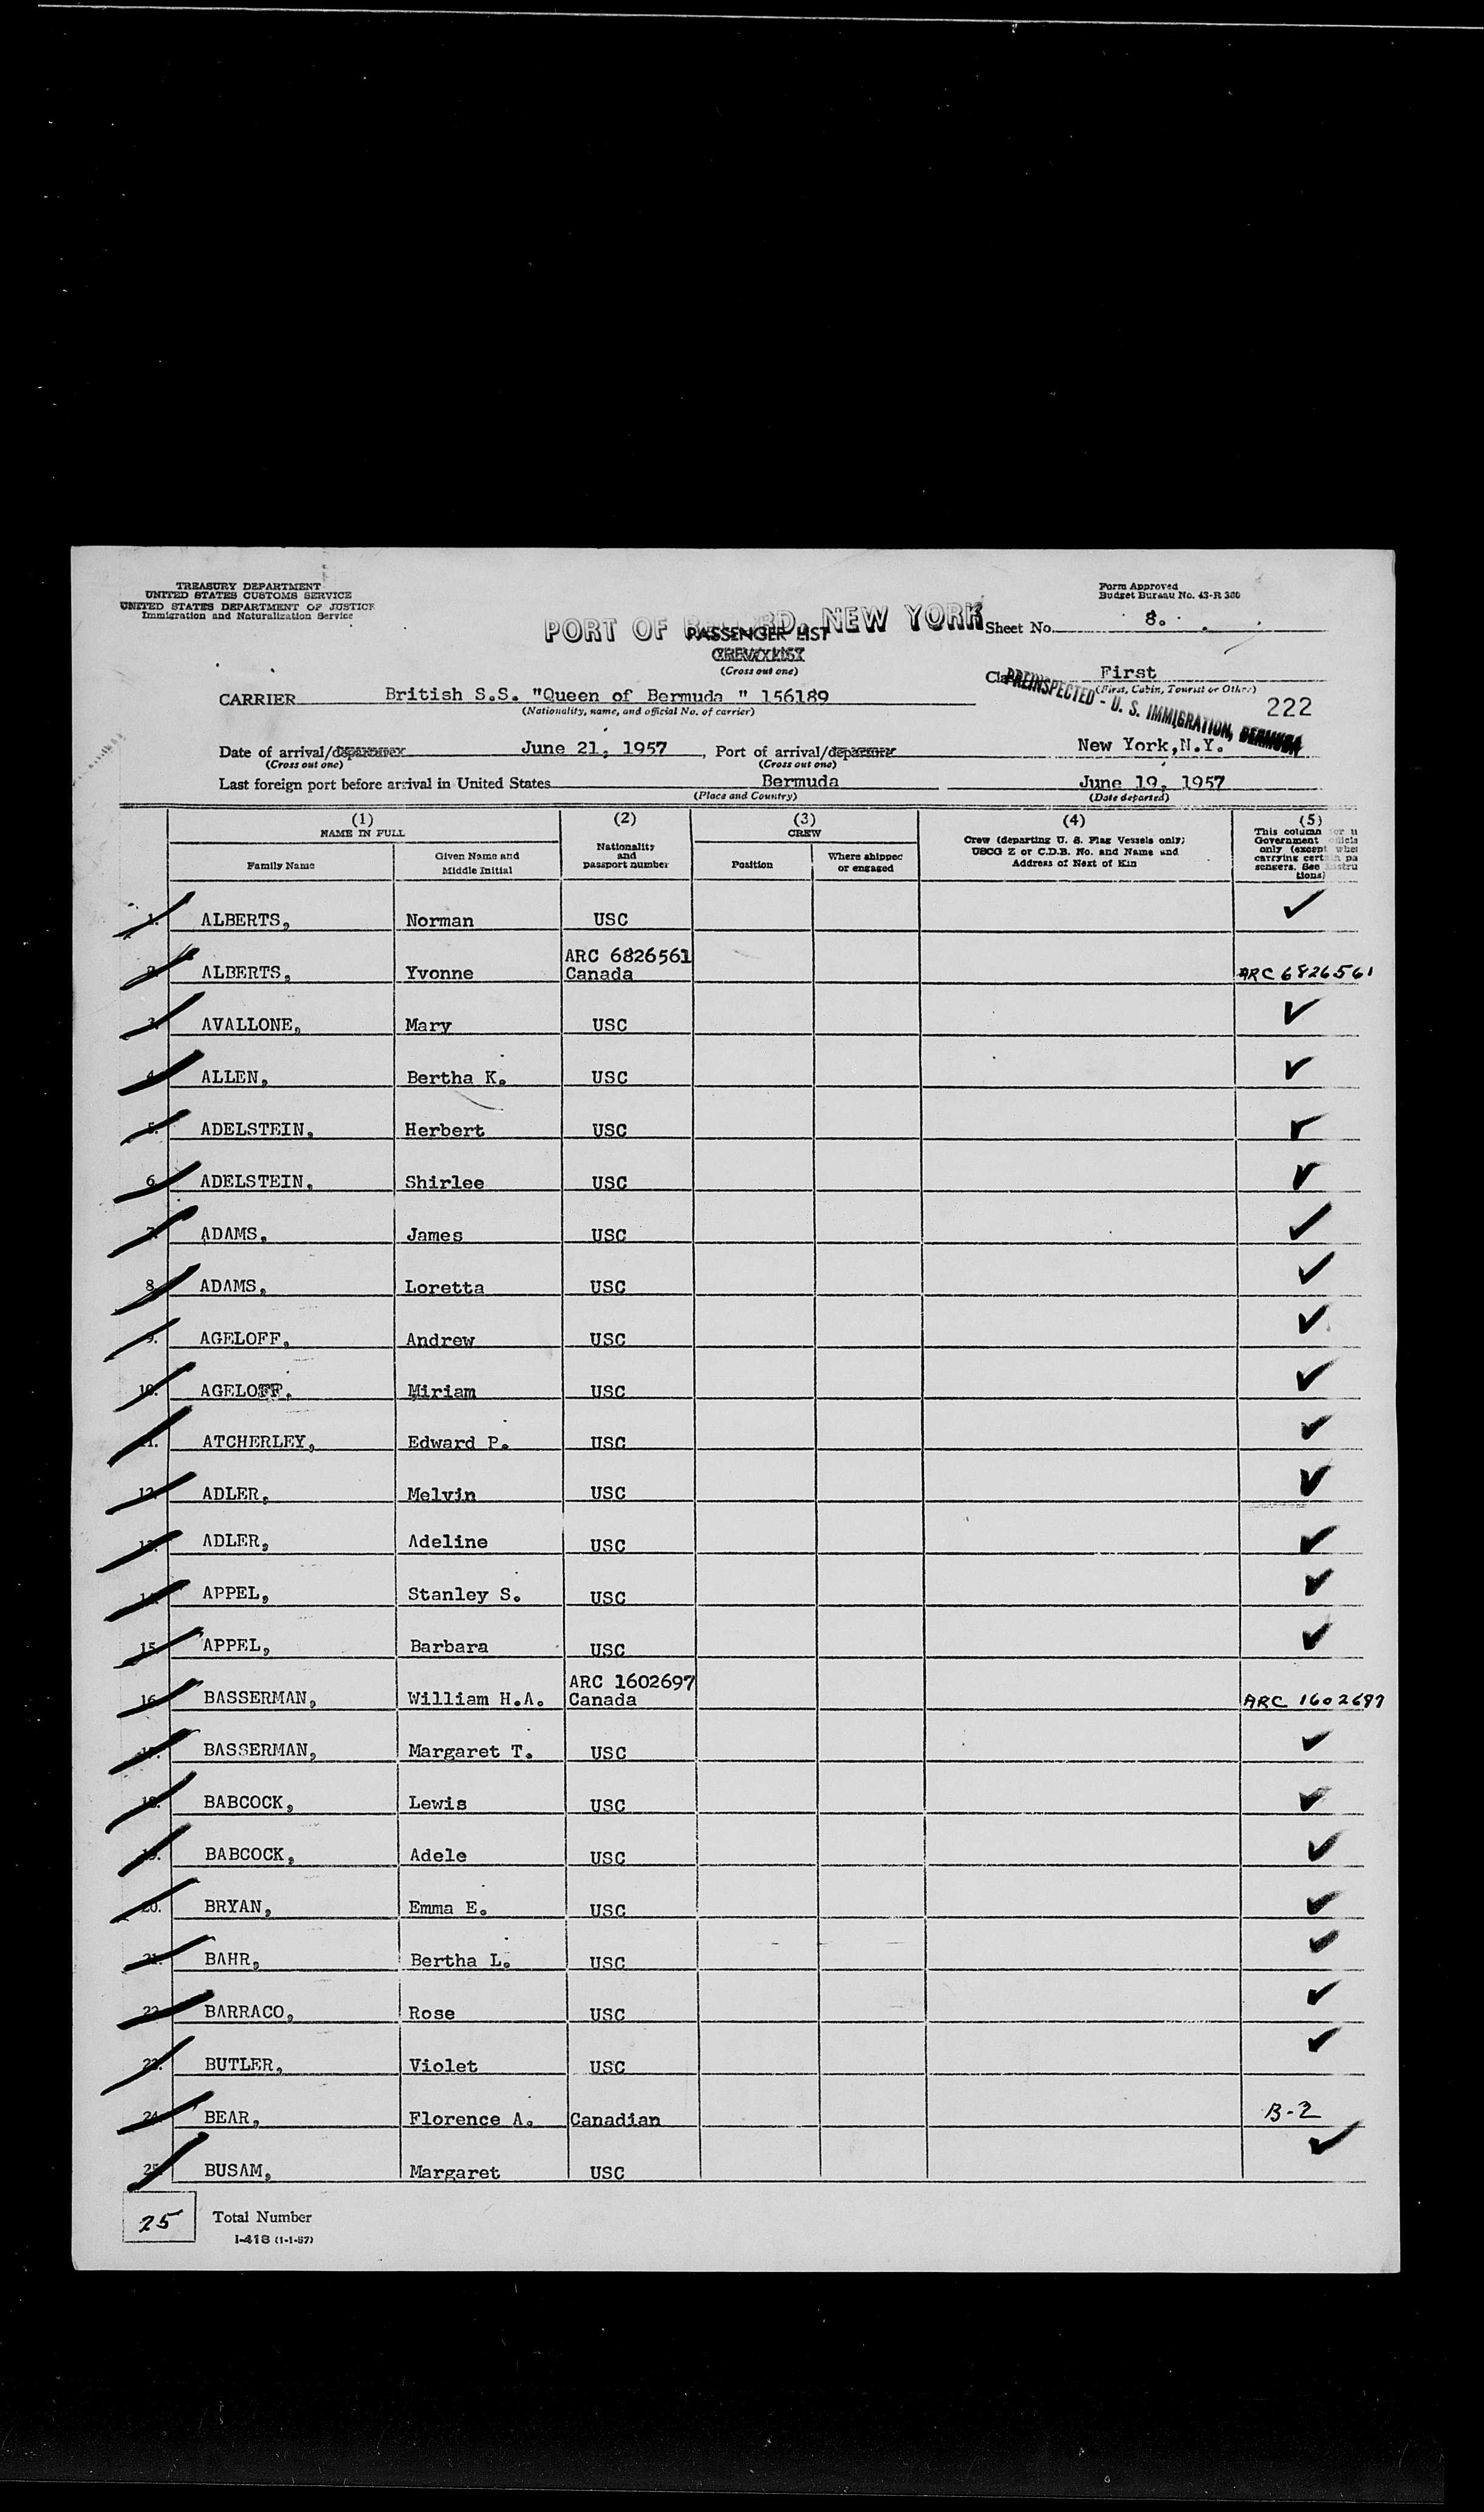 TREASURY DEPARTMENT
UNITED STATES CUSTOMS SERVICE
UNITED STATES DEPARTMENT OF JUSTICE
Immigration and Naturalization Service
Form Approved
Budget Bureau No. 43-R 300
PORT OF NEW YORK
PASSENGER LIST
CREW LIST
(Cross out one)
Sheet No. 8.
Class First
(First, Cabin, Tourist or Other)
PREINSPECTED - U. S. IMMIGRATION, BERMUDA
222
CARRIER British S.S. "Queen of Bermuda " 156189
(Nationality, name, and official No. of carrier)
Date of arrival/departure June 21, 1957, Port of arrival/departure New York,N.Y.
(Cross out one) (Cross out one)
Last foreign port before arrival in United States Bermuda June 19, 1957
(Place and Country) (Date departed)
(1) (2) (3) (4) (5)
NAME IN FULL
Family Name
Given Name and Middle Initial
Nationality and passport number
CREW
Position
Where shipped or engaged
Crew (departing U. S. Flag Vessels only; USCG Z or C.D.B. No. and Name and Address of Next of Kin
This column for u
Government officia
only (except whe
carrying certain pa
sengers. See Instru
tions)
1. ALBERTS, Norman USC ✓
2. ALBERTS, Yvonne ARC 6826561 Canada ARC 6826561
3. AVALLONE, Mary USC ✓
4. ALLEN, Bertha K. USC ✓
5. ADELSTEIN, Herbert USC ✓
6. ADELSTEIN, Shirlee USC ✓
7. ADAMS, James USC ✓
8. ADAMS, Loretta USC ✓
9. AGELOFF, Andrew USC ✓
10. AGELOFF, Miriam USC ✓
11. ATCHERLEY, Edward P. USC ✓
12. ADLER, Melvin USC ✓
13. ADLER, Adeline USC ✓
14. APPEL, Stanley S. USC ✓
15. APPEL, Barbara USC ✓
16. BASSERMAN, William H.A. ARC 1602697 Canada ARC 1602697
17. BASSERMAN, Margaret T. USC ✓
18. BABCOCK, Lewis USC ✓
19. BABCOCK, Adele USC ✓
20. BRYAN, Emma E. USC ✓
21. BAHR, Bertha L. USC ✓
22. BARRACO, Rose USC ✓
23. BUTLER, Violet USC ✓
24. BEAR, Florence A. Canadian B-2
25. BUSAM, Margaret USC ✓
25 Total Number
I-418 (1-1-57)